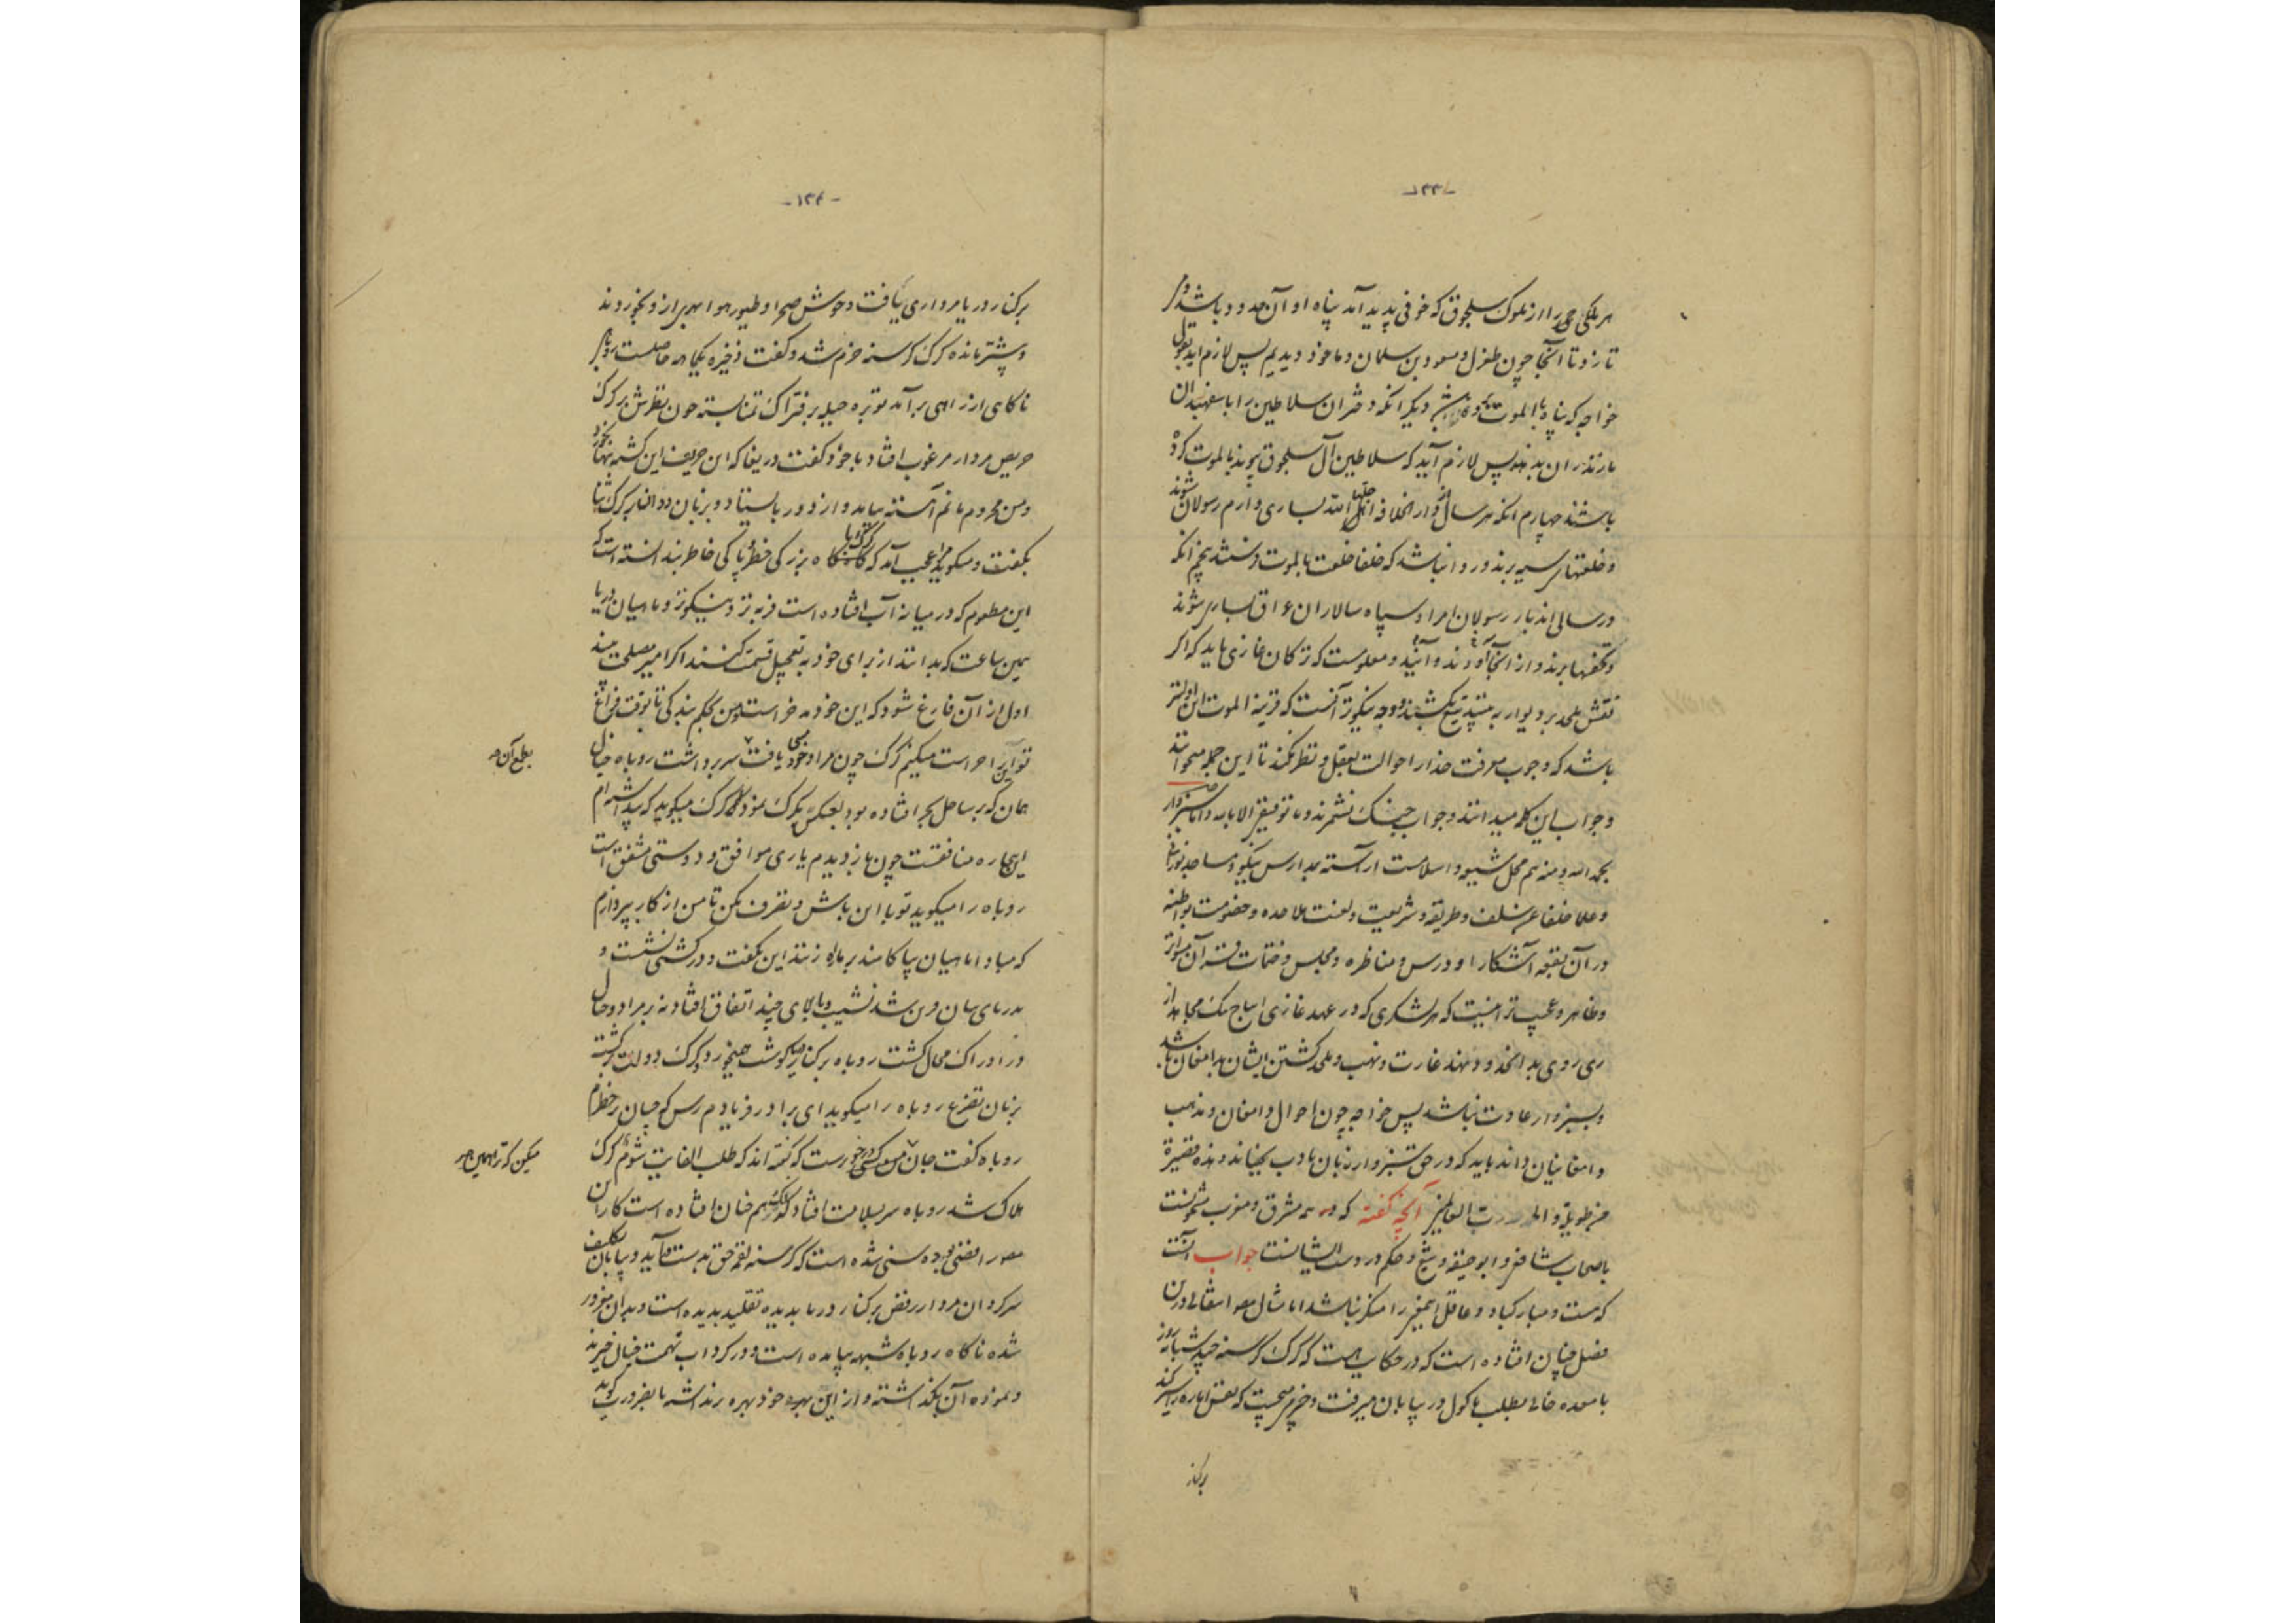 -۱۳۳-
هر ملکی را از ملوک سلجوق که خوفی پدید آمد پناه او آن حدود باشد و
تا آنجا چون طغرل و مسعود بن سلمان و ما خود دیدیم پس لازم آید بقول
خواجه که پناه با الموت دیگر آنکه دختران سلاطین را با سفهبدان
مازندران بدهند پس لازم آید که سلاطین آل سلجوق پیوند بالموت کرده
باشند چهارم آنکه هر سال از دار الخلافه بساری و ارم رسولان شوند
و خلعتها برند و روا نباشد که خلفا خلعت بالموت فرستند پنجم آنکه
در سالی اند بار رسولان امرا و سپاه سالاران عراق بساری شوند
و تحفها برند و از آنجا آورند و معلومست که ترکان غازی باید که اگر
نقش ملحد بر دیوار بینند بتیغ بکشند و وجه نیکوتر آنست که قرینه الموت این اولیتر
باشد که وجوب معرفت خدا را حوالت بعقل و نظر نکند تا این جمله میخوانند
و جواب این کلمه میدانند و جواب جنگ نشمرند و ما توفیقی الا بالله و اما سبزوار
بحمد الله و منه هم محل شیعه و اسلامست آراسته بمدارس نیکو و مساجد نورانی
و علما خلفا عن سلف و طریقه و شریعت و لعنت ملاحده و خصومت بواطنه
در آن بقعه آشکارا و درس و مناظره و مجلس و ختمات قرآن متواتر
و ظاهر و عجب تر اینست که هر لشکری که در عهد غازی از
ری روی بدانحدود نهند غارت و نهب و ملحد کشتن ایشان بدامغان باشد
و بسبزوار عادت نباشد پس خواجه چون احوال دامغان و مذهب
دامغانیان داند باید که در حق سبزوار زبان بادب بجنباند و هذه قصیرة
من طویلة و الحمد لله رب العالمین آنچه گفته که در همه مشرق و مغرب
باصحاب شافعی و ابو حنیفه و تیغ و حکم در دست ایشانست جواب آنست
که هست و مبارکباد و عاقل این معنی را منکر نباشد اما مثال درین
فصل چنان افتاده است که در حکایت است که گرگ گرسنه چند شبانروز
با معده خالی بطلب ماکول در بیابان میرفت و خرم میجست که نفس اماره را سیر کند
برکنار
-۱۳۴-
برکنار دریا مرداری یافت وحوش صحرا و طیور هوا بهری از و بخورده
و بیشتر مانده گرگ گرسنه خرم شد و گفت ذخیره یکماهه حاصلست روباهی
ناگاه از راهی برآمد توبره حیله بر فتراک تمنا بسته چون نظرش بر گرگ
حریص و مردار مرغوب افتاد با خود گفت دریغا که این حریف این گشته تنها بخورد
و من محروم مانم آهسته بیامد و از دور بایستاد و بر زبان ددان بر گرگ ثنا
بگفت و میگوید مرا عجب آمد که گرگ را با بزرگی خطر و پاکی خاطر بندانسته است که
این مطعوم که در میانه آب افتاده است فربه تر و نیکوتر و ماهیان دریا
همین ساعت که بدانند از برای خود به تعجیل قسمت کنند اگر امیر مصلحت بیند
اول از آن فارغ شود که این خود مدخر است و من بحکم بندگی تا بوقت فراغ
تو این را حراست میکنم گرگ چون مراد خود یافت سر برداشت روباه خیال
همان که بر ساحل بحر افتاده بود بعکس بگرگ نمود گرگ میگوید که پنداشته ام
این بیچاره منافقست چون باز دیدم یاری موافق و دوستی مشفق است
روباه را میگوید تو با این باش و تصرف مکن تا من از کار بپردازم
که مبادا ماهیان بپاکامند بر ما راه زنند این بگفت و در کشتی نشست و
بدریای بی پایان و بن شد نشیب و بالای چند اتفاق افتاد نه بر مراد و حال
در ادراک محال گشت روباه بر کنار گوشت میخورد و گرگ دولت برگشته
بزبان تضرع روباه را میگوید ای برادر فریادم رس که جان در خطرم
روباه گفت جان من درخورست که گفته اند که طلب الغایت شوم گرگ
هلاک شد روباه سر بسلامت افتاد هم چنان افتاده است کار این
مصنف رافضی بوده سنی شده است که گرسنه لقمه حق بدست آید و بیابان تکلیف
سرگردان مردار رفض بر کنار دریا بدیده تقلید بدیده است و بدان مغرور
شده ناگاه روباه شبهه بیامده است و در گرداب تهمت خیال خبر بد
و نموده آن بگذاشته و از این بهره خود بهره برنداشته تا بضرورت گوید
بطمع آن صح
میکن که ترا همین صح